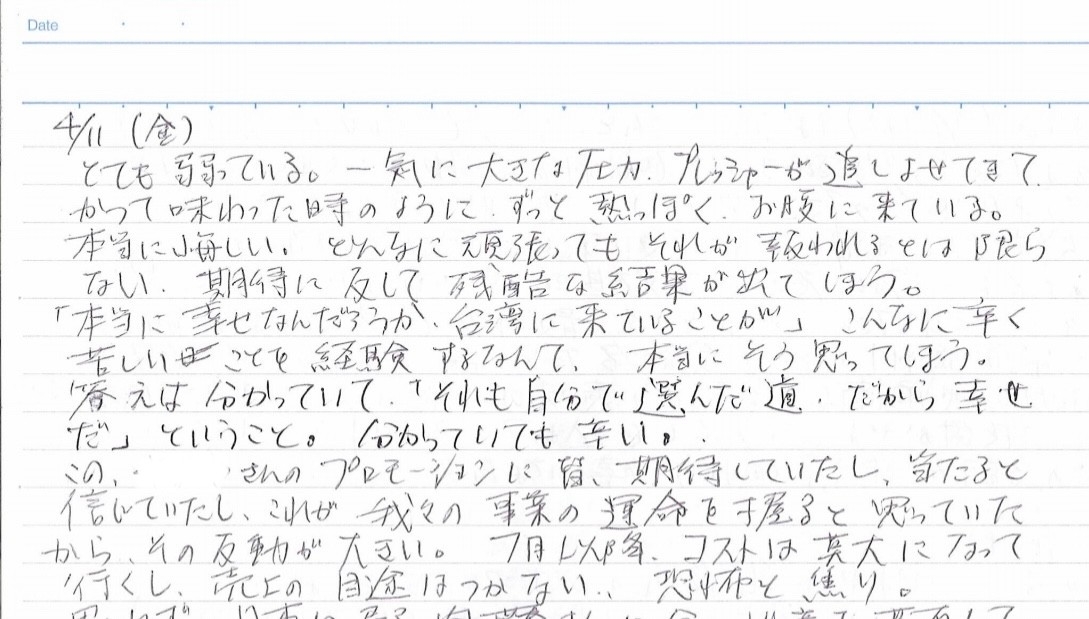 Date
4/11 (金)
とても弱っている。一気に大きな圧力、プレッシャーが追しよせてきて、
かつて味わった時のように、ずっと熱っぽく、お腹に来ている。
本当に悔しい。どんなに頑張ってもそれが報われるとは限ら
ない、期待に反して残酷な結果が出てしまう。
「本当に幸せなんだろうか、台湾に来ていることが」こんなに辛く
苦しいことを経験するなんて、本当にそう思ってしまう。
答えは分かっていて、「それも自分で選んだ道、だから幸せ
だ」ということ。分かっていても辛い。
この、さんのプロモーションに皆、期待していたし、当たると
信じていたし、これが我々の事業の運命を握ると思っていた
から、その反動が大きい。7月以降、コストは莫大になって
行くし、売上の目途はつかない、恐怖と焦り。